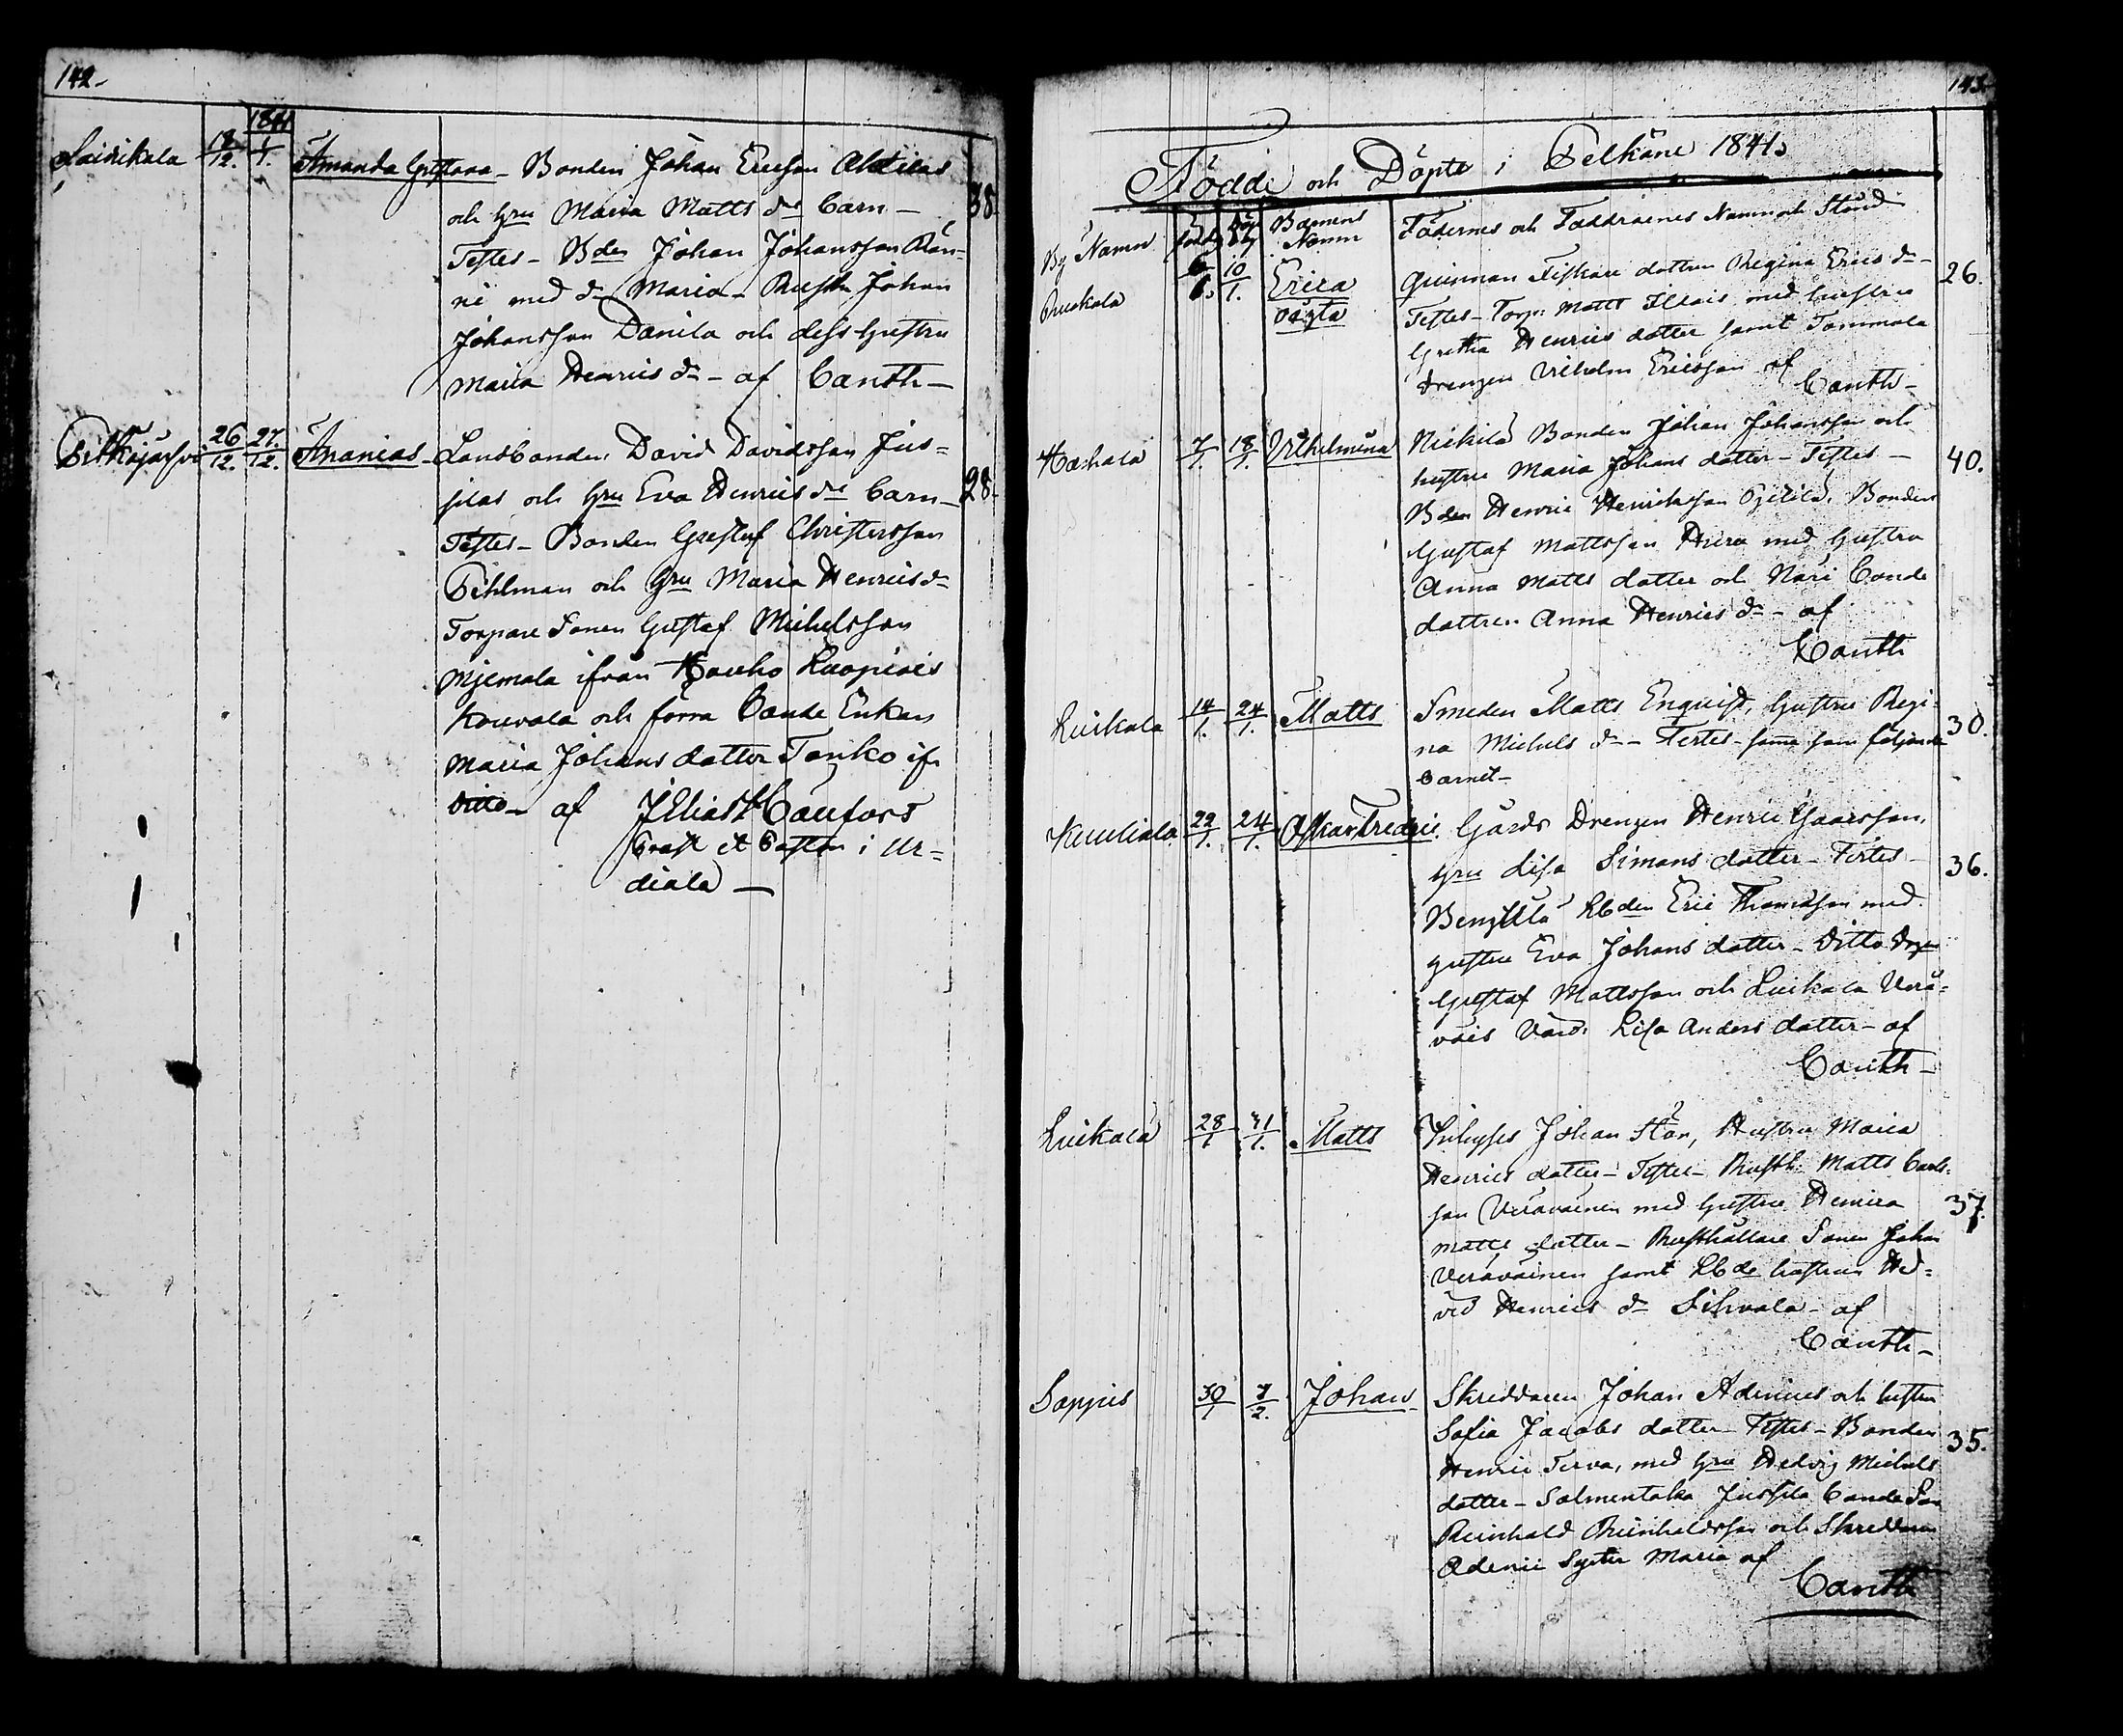 142-
1841
Laidikala 18/12. 1/1. Amanda Gustava - Bonden Johan Ericsson Ahtilas
och hru Maria Matts dr barn - 38.
Testes - Bden Johan Johansson
ni med dr Maria - Rusth Johan
Johansson Danila och dess hustru
Maria Henrics dr - af Canth -
Pitkäjärfvi 26/12. 27./12. Ananias - Landbonden David Davidsson Jus=
silas och hru Eva Henrics dr barn - 28.
Testes - Bonden Gustaf Christersson
Pihlman och hru Maria Henrics dr
Torpare Sonen Gustaf Michelsson
Mjemala ifrån Hauho
Kouvala och förra Bonde Enkan
Maria Johans dotter Tonko ifr
Ditto - af
Prost et Pastor i Ur=
diala -
143.
Födde och Döpte i Pelkäne 1841.
By Namn född döpt Barnens Namn Fädernes och Faddrarnes Namn och Stånd
6/1. 10/1. Erica qvinnan Fiskare dottren Regina Erics dr - 26.
Testes - Torp: Matts Illais med hustru
Gretha Henrics dotter samt Tommola
drengen Vilhelm Ericsson af
Canth -
7/1. 18/1. Vilhelmina Nickilä Bonden Johan Johansson och
hustru Maria Johans dotter - Testes - 40.
Bden Henric Henriksson Bonden
Gustaf Mattsson med hustru
Anna Matts dotter och Näri bonde
dottren Anna Henrics dr - af
Canth
Luikala 14/1. 24/1. Matts Smeden Matts Enqvist, hustru Regi=
na Michels dr - Testes - samma som följande 30.
Barnet -
Kuuliala 22/1. 24/1. Oskar Fredric. Gårds Drengen Henric
hru Lisa Simons dotter - Testes - 36.
Lbden Eric Thomasson med
hustru Eva Johans dotter - Ditto drgn
Gustaf Mattsson och Luikala Verä=
väis Lisa Anders dotter - af
Canth -
Luikala 28/1 31/1. Matts Inhyses Johan Stor, Hustru Maria
Henrics dotter - Testes - Rusth: Matts Carls=
son Veräväinen med hustru Henrica 37.
Matts dotter - Rusthållare Sonen Johan
Veräväinen samt Lbde hustrun Hed=
vid Henrics dr Sihvola - af
Canth -
Sappis 30/1 7/2. Johan - Skreddaren Johan Adenius och hustru
Sofia Jacobs dotter - Testes - Bonden 35.
Henric Terva, med hru Hedvig Michels
dotter - Salmentaka Jussila bonde Son
Reinhold Reinholdsson och Skreddaren
Adenii Syster Maria af
Canth